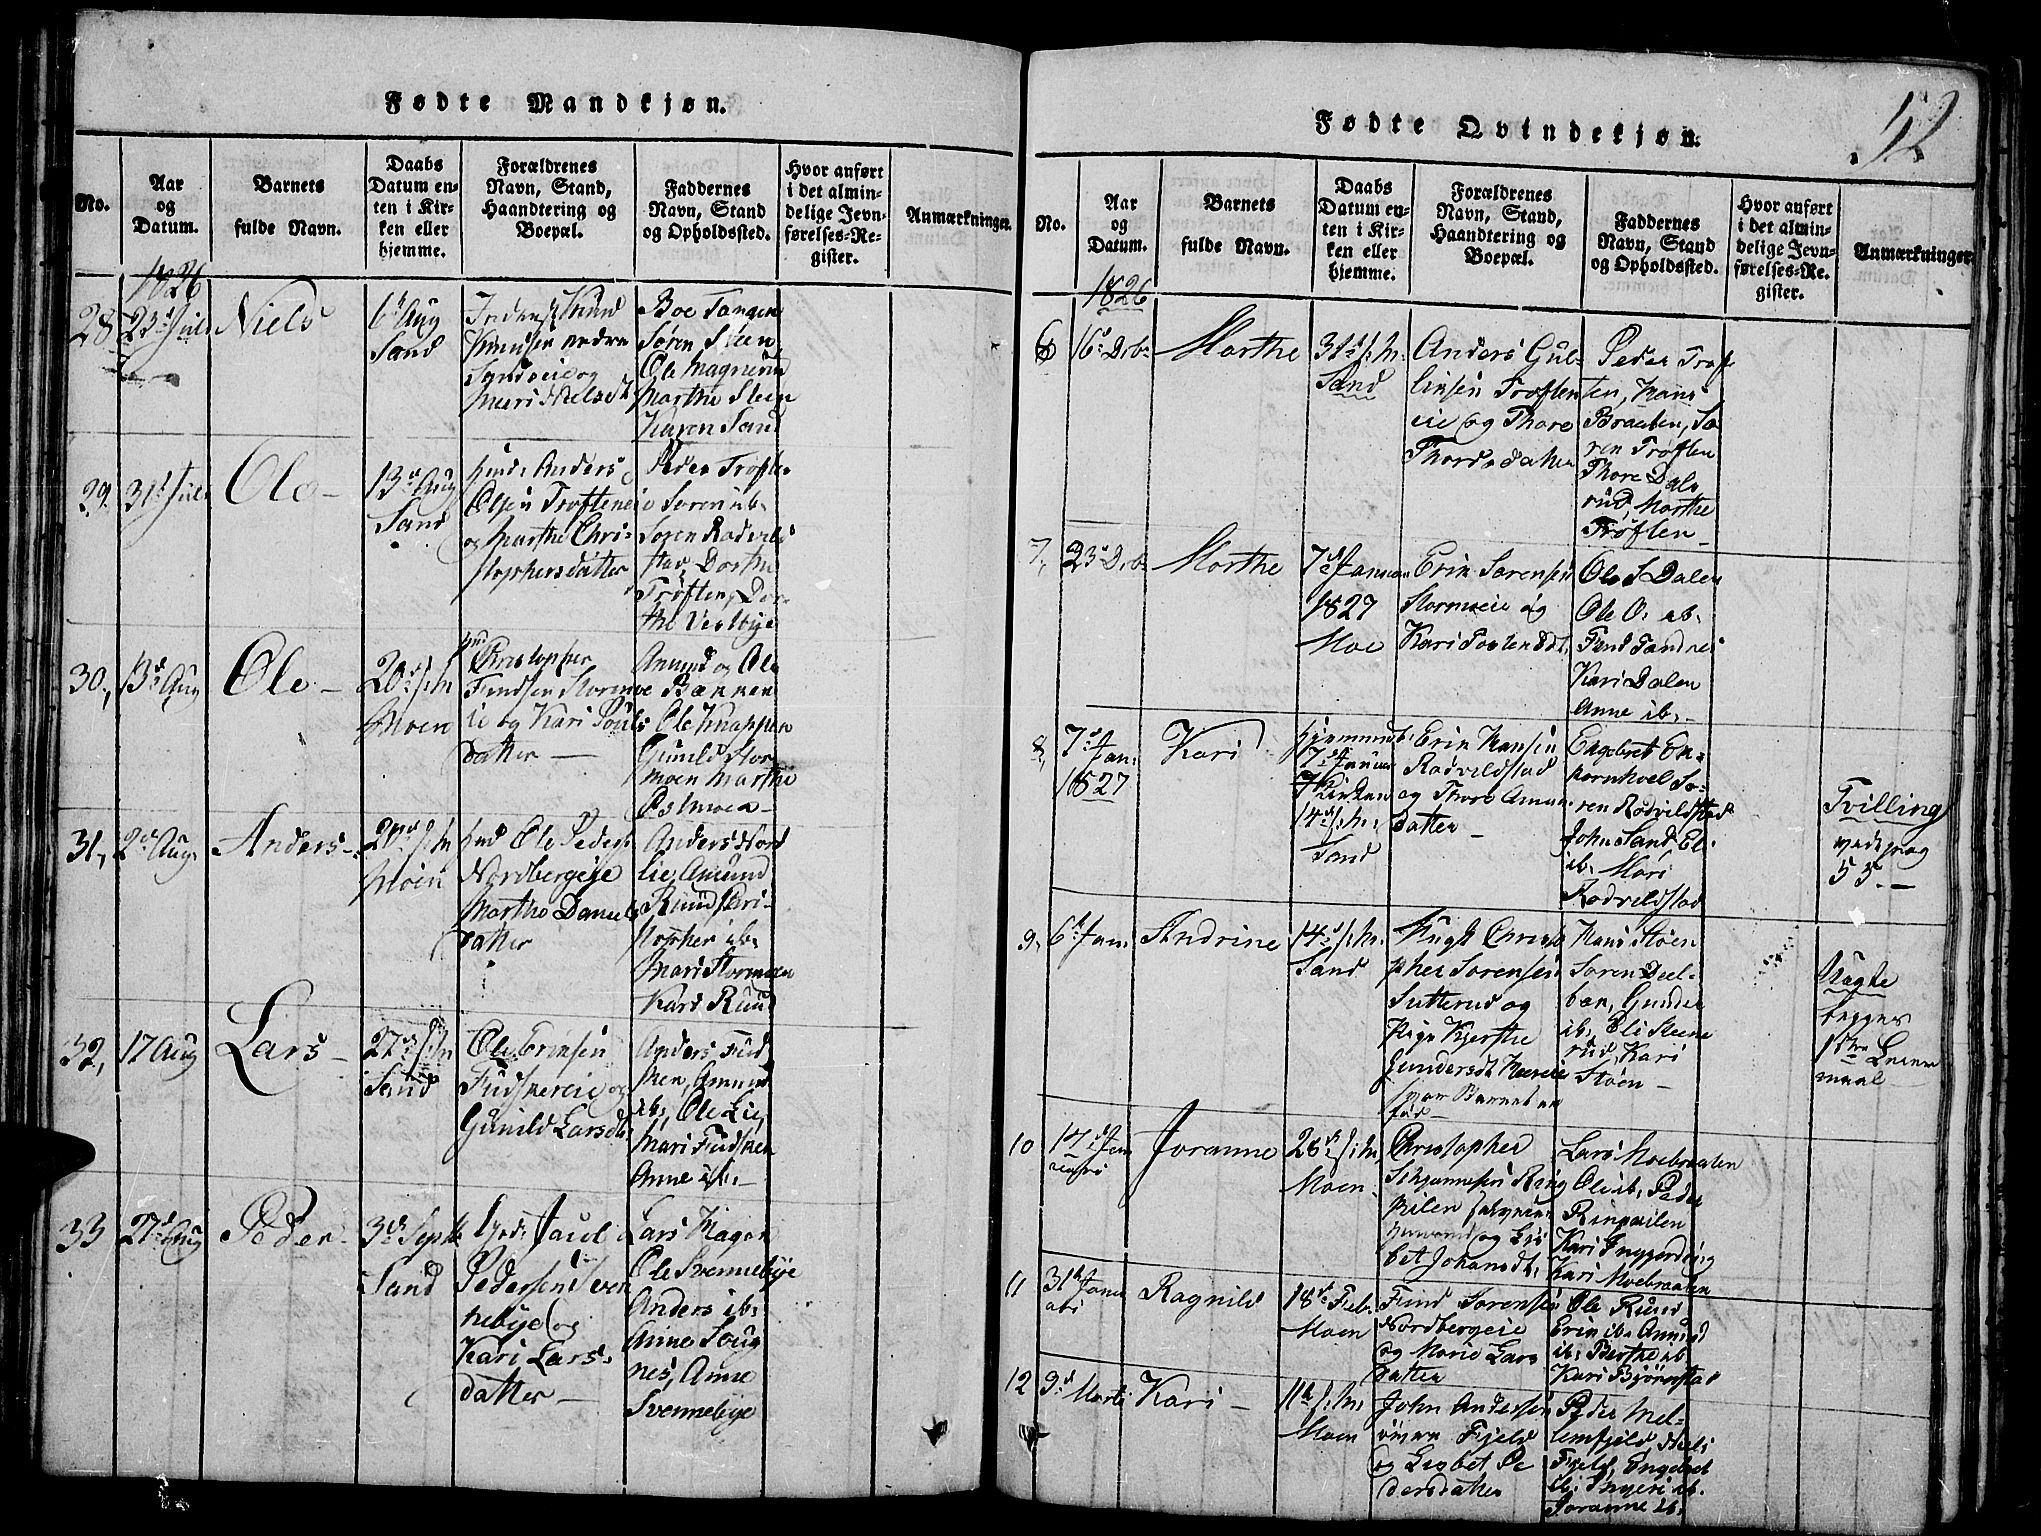 Fødte Mandkjøn.
No.
Aar
og
Datum.
Barnets
fulde Navn.
Daabs
Datum en-
ten i Kir-
ken eller
hjemme.
Forældrenes
Navn, Stand,
Haandtering og
Boepæl.
Faddernes
Navn, Stand
og Opholdssted.
Hvor anført
i det almin-
delige Jevn-
førelses-Re-
gister.
Anmærkninger.
1826
28 23d Juli
Niels
6t Aug
Sand
Knud
Knudsen nedre
Sandeie og
Mari Nielsdt
Boe Tangen
Søren Steen
Ole Magnerud
Marthe Steen
Karen Sand
29. 31t Juli
Ole
13d Aug
Sand
Anders
Olsen Trøfteneie
og Marthe Chri-
stophersdatter
Peder Trøften
Soren ib.
Soren Rødvild
stad, Dorthe
Trøften, Dor-
the Vestbye
30, 13d Aug
Ole
20d s:m
Moen
Christopher
Findsen Stormoe
ie og Kari Pouls
datter
Amund og Ole
Bakken
Ole Knappen
Gunild Stor
moen Marthe
Østmoen
31, 2d Aug.
Anders
20d s:m
Moen
Ole Peders
Nordbergeie
Marthe Daniels
datter
Anders Nord
lie, Amund
Ruud, Chri-
stopher ib.
Mari Stormoen
Kari Ruud
32, 17 Aug
Lars
27d s:m
Sand
Ole Erichsen
Fudskereie og
Gunild Larsdt.
Anders Fud
sken, Amund
ib, Ole Lie,
Mari Fudsken
Anne ib.
33 27d Aug
Peder
3d Septb
Sand
Paul
Pedersen Sven
nebye og
Kari Lars-
datter
Lars Hagen
Ole Svennebye
Anders ib.
Anne Soug
nes, Anne
Svennebye
Fødte Qvindekjøn.
52
No.
Aar
og
Datum.
Barnets
fulde Navn.
Daabs
Datum en-
ten i Kir-
ken eller
hjemme.
Forældrenes
Navn, Stand,
Haandtering og
Boepæl.
Faddernes
Navn, Stand
og Opholdssted.
Hvor anført
i det almin-
delige Jevn-
førelses-Re-
gister.
Anmærkninger.
1826
6 16d Drb
Marthe
31d s:m.
Sand
Anders Gul-
liksen Trøften
eie og Thore
Thordsdatter
Peder Trøf
ten, Hans
Braaten, So
ren Trøften
Thore Dale
rud, Marthe
Trøften
7, 23d Drb
Marthe
7d Januar
1827
Moe
Erik Sorensen
Stormoeie og
Kari Torstensdt.
Ole S Dalen
Ole O. ib.
Find Sandnes
Kari Dalen
Anne ib.
8, 7d Jan.
1827
Kari
hjemmedøbt
7d Januar
Kirken
14d s:m:
Sand
Erik Hansen
Rødvildstad
og Thore Amun
datter
Engebret En-
kornhoel So-
ren Rødvildstad
John Sand, El.
ib. Mari
Rødvildstad
Tvilling
vide pag
55.
9, 6t Jan.
Andrine
14d s:m.
Sand
Ungk Christo
pher Sorensen
Sutterud og
Pige Kjerstie
Gundersdt
hvor Barnet er
fød
Hans Støen
Soren Deel-
bæk, Gunder
ib. Eli Steene
rud, Kari
Støen
Uægte
begges
1ste Leier
maal
10 17d Jan
Joranne
28d s:m.
Moen
Christopher
Johannesen Ring
pilen
og Lis
bet Johansdt.
Lars Moebraaten
Ole ib. Peder
Ringpilen
Kari Inggerding
Kari Moebraaten
11 31t Janu
Ragnild
18d Feb.
Moen
Find Sorensen
Nordbergeie
og Marie Lars
datter
Ole Ruud
Erik ib. Amund
ib. Berthe ib
Kari Bjørnstad
12 9d Marti
Kari
11d s:m.
Moen
John Andersen
øvre Fjeld
og Lisbet Pe
dersdatter
Peder Mel-
lemfjeld, Niels
Fjeld, Engebret
ib. Ingeri ib.
Joranne ib.